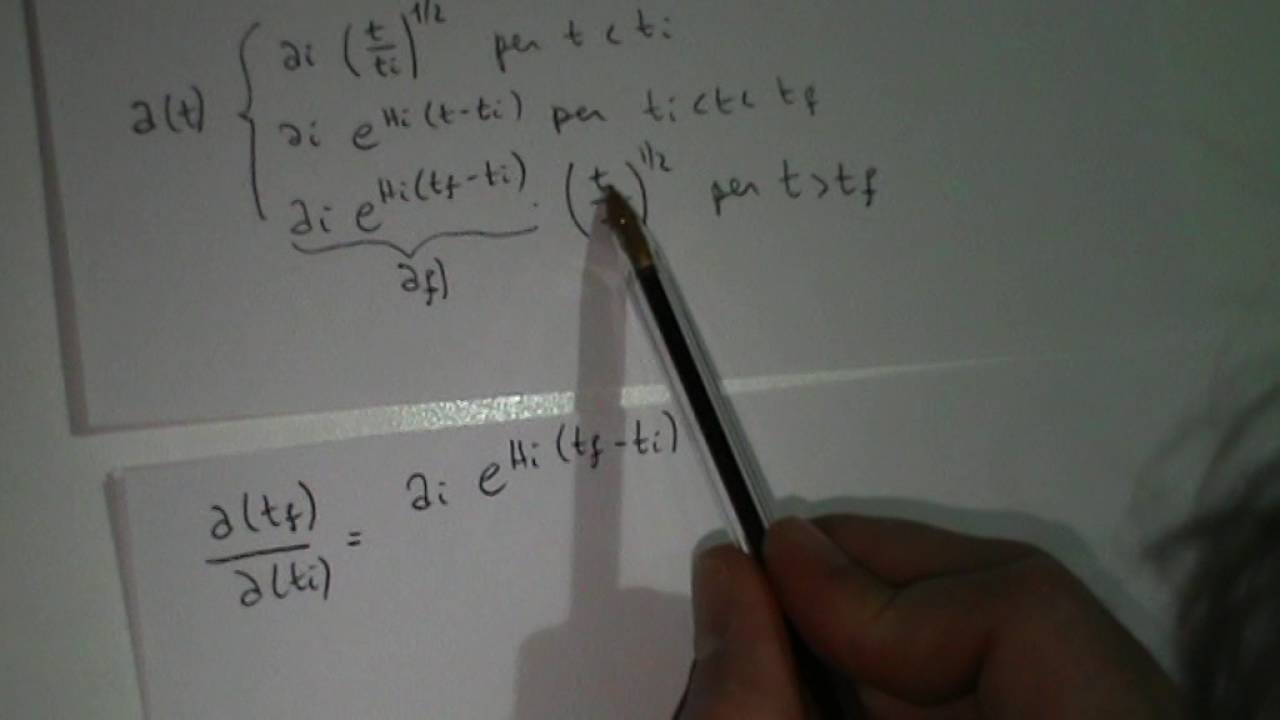 a(t) { ai (t/ti)^1/2 per t < ti
ai e^Hi(t-ti) per ti < t < tf
ai e^Hi(tf-ti) · (t/ )^1/2 per t > tf
af
a(tf)/a(ti) = ai e^Hi(tf-ti)